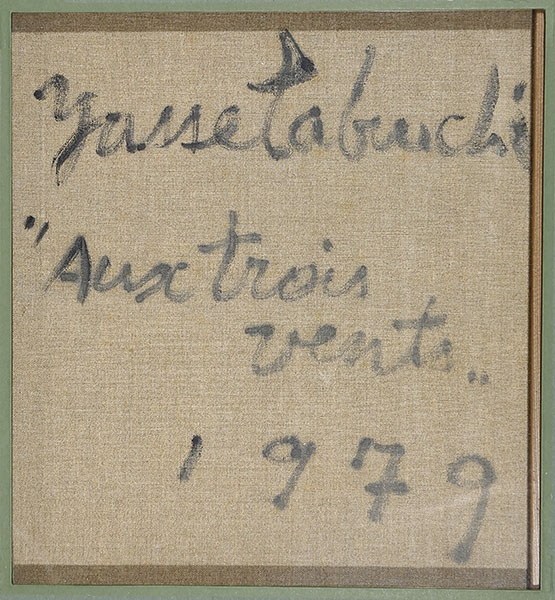 Yasse Tabuchi
"Aux trois
vents"
1979